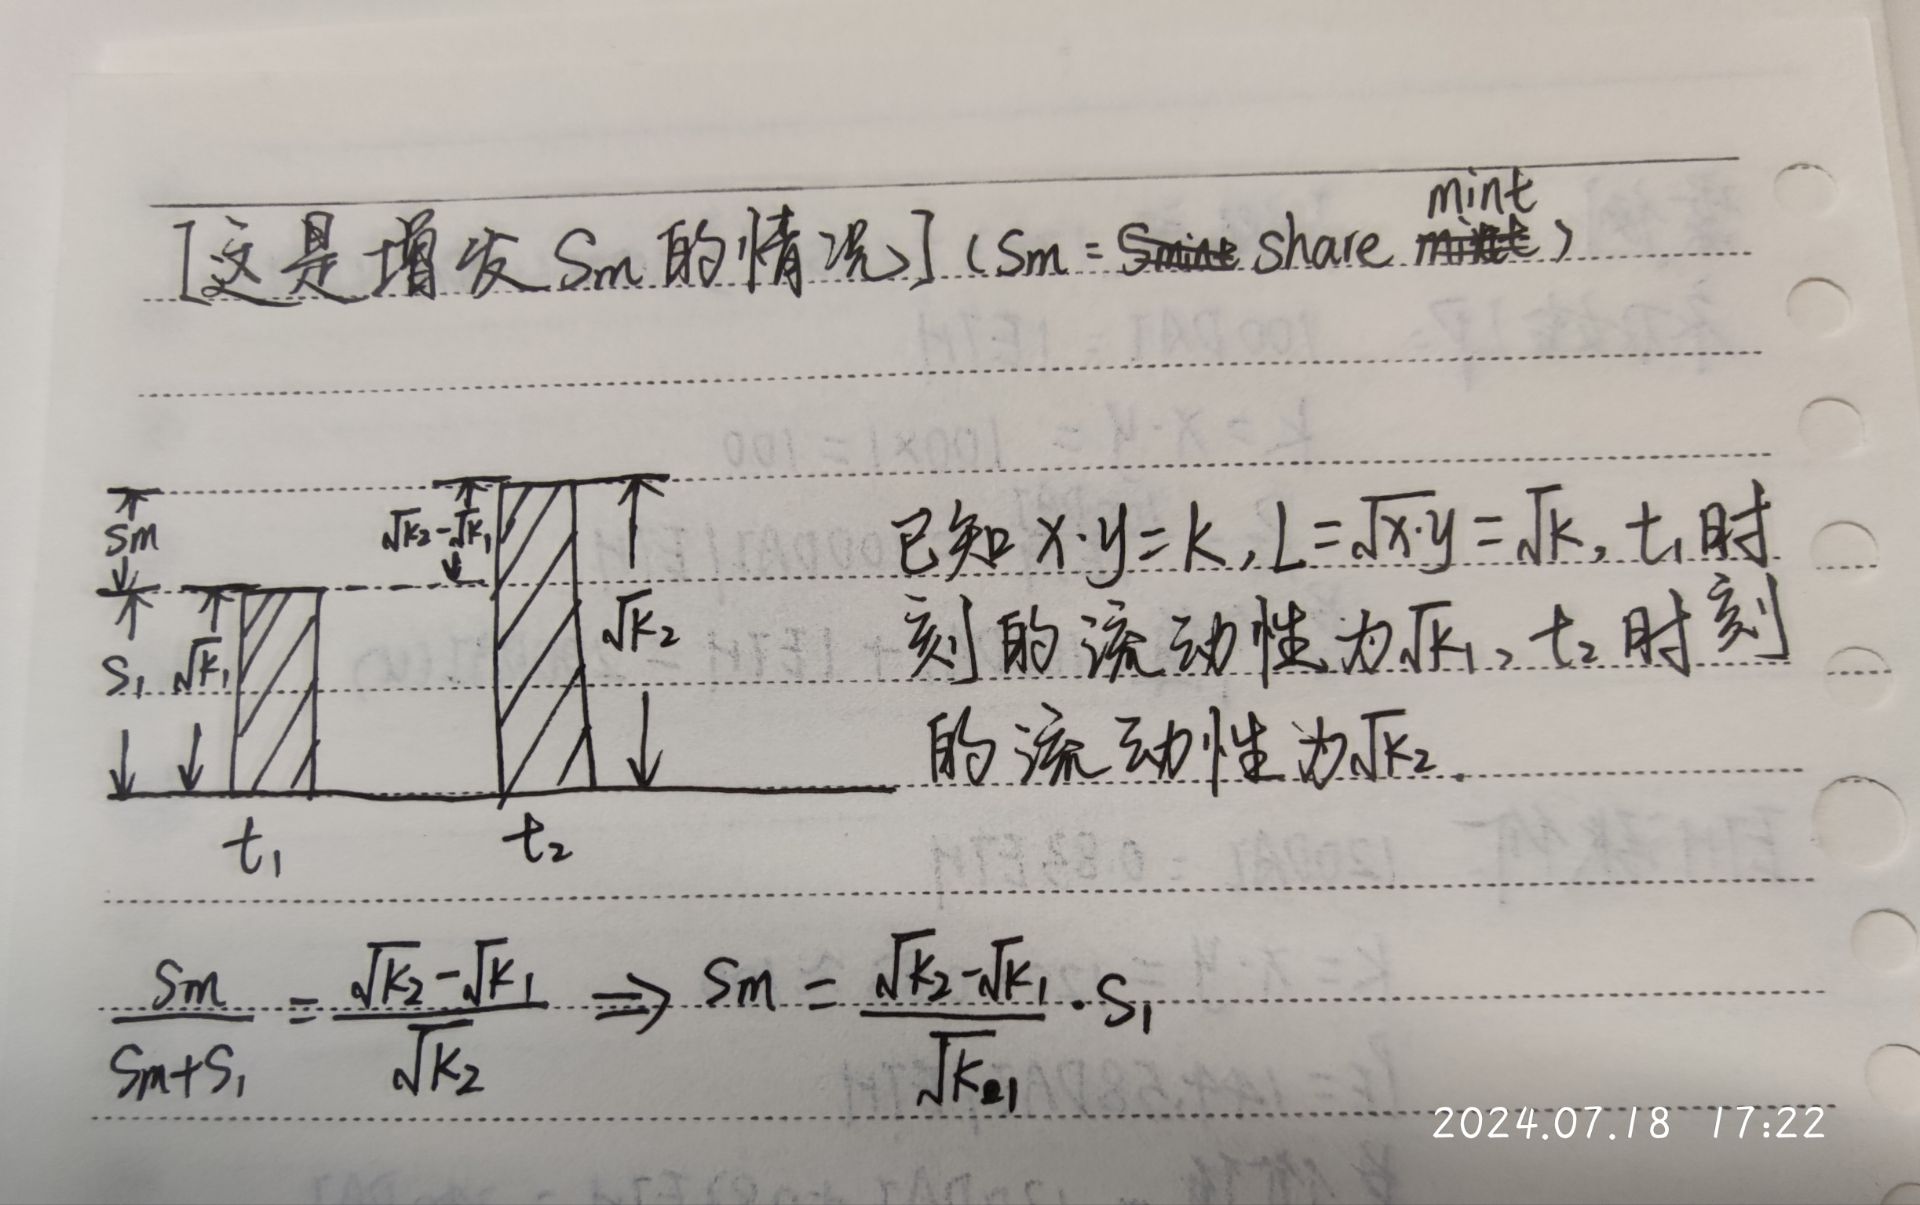 [这是增发Sm的情况](Sm = share mint)
Sm
√k₂-√k₁
S₁
√k₁
√k₂
t₁
t₂
已知x·y=k,L=√x·y=√k,t₁时
刻的流动性为√k₁,t₂时刻
的流动性为√k₂.
Sm/(Sm+S₁) = (√k₂-√k₁)/√k₂ ⇒ Sm = (√k₂-√k₁)/√k₁ · S₁
2024.07.18 17:22